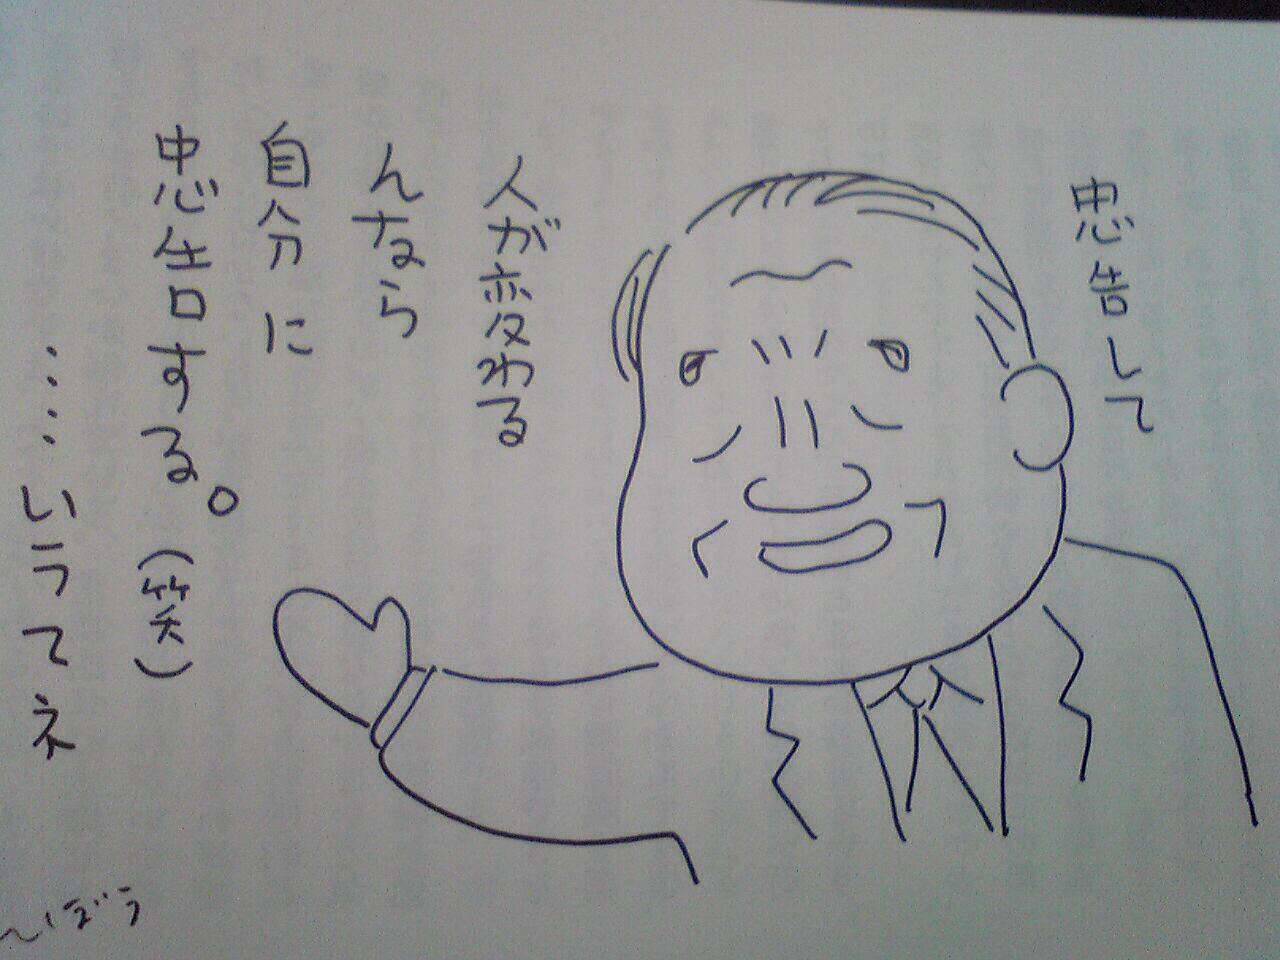 忠告して
人が変わる
んなら
自分に
忠告する。(笑)
……いうてネ